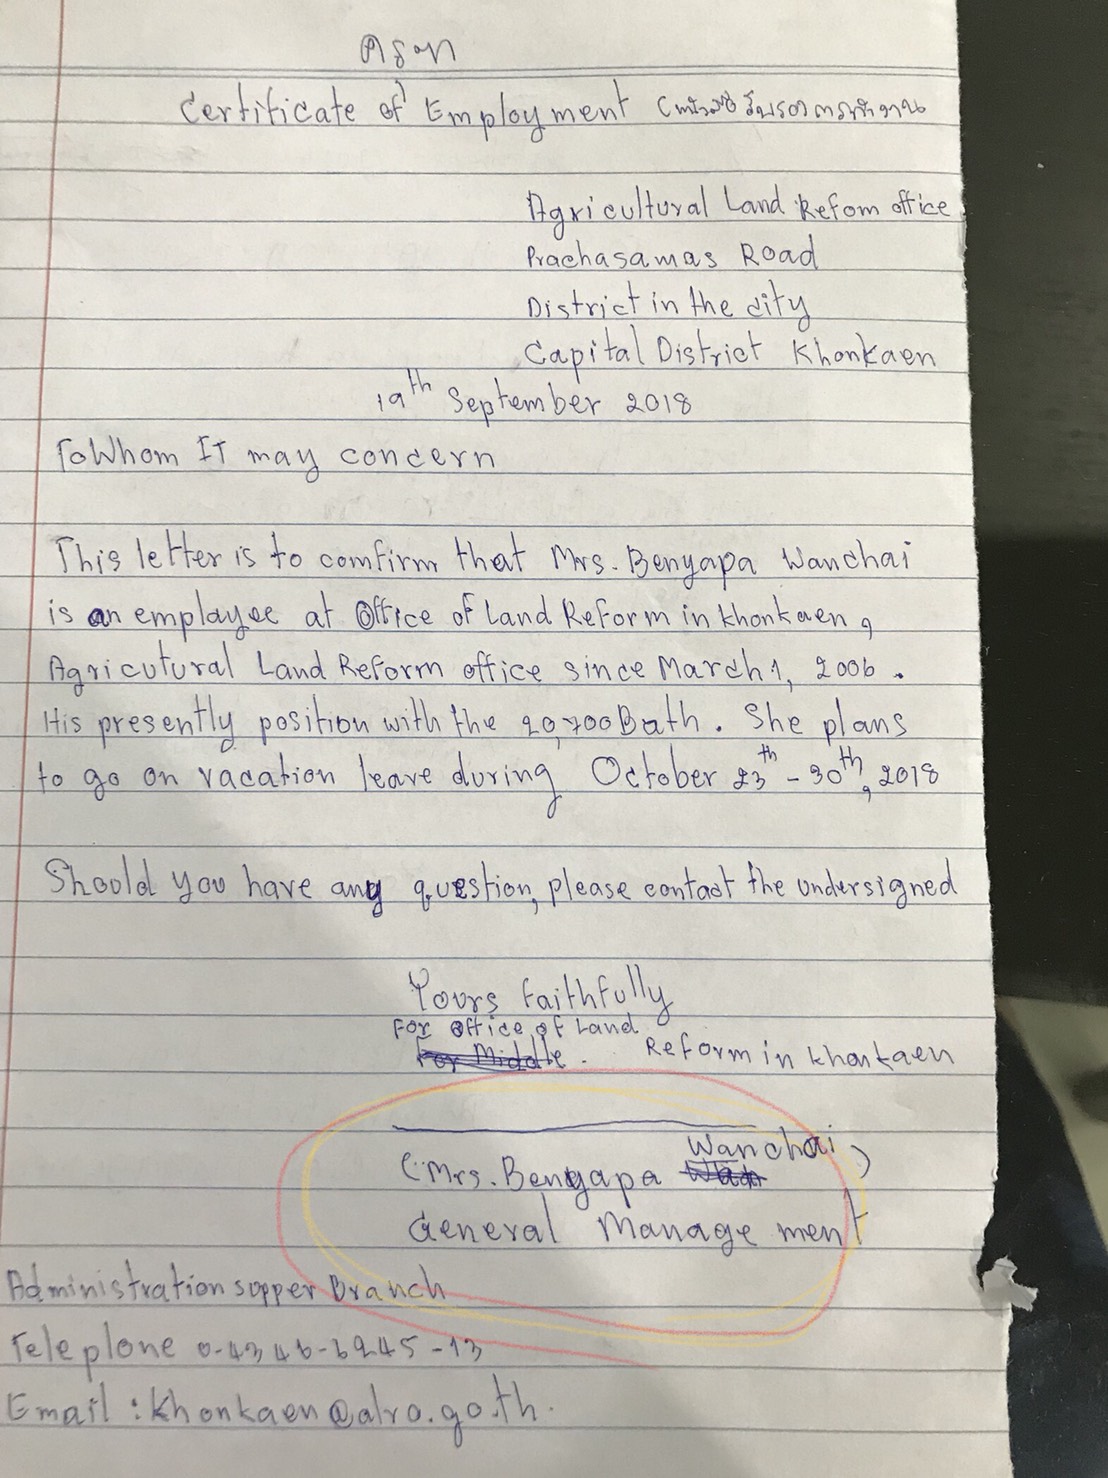 Certificate of Employment (หนังสือรับรองการทำงาน
Agricultural Land Refom office
Prachasamas Road
District in the city
Capital District Khonkaen
19th September 2018
To Whom It may concern
This letter is to comfirm that Mrs. Benyapa Wanchai
is an employee at Office of Land Reform in khonkaen,
Agricutural Land Reform office since March 1, 2006.
His presently position with the Bath. She plans
to go on vacation leave during October 23th - 30th, 2018
Shoold you have any question, please contact the undersigned
Yours faithfully
For Office of Land
Reform in khonkaen
(Mrs. Benyapa Wanchai)
General Manage ment
Administration supper Branch
Teleplone
Email : khonkaen@alro.go.th.